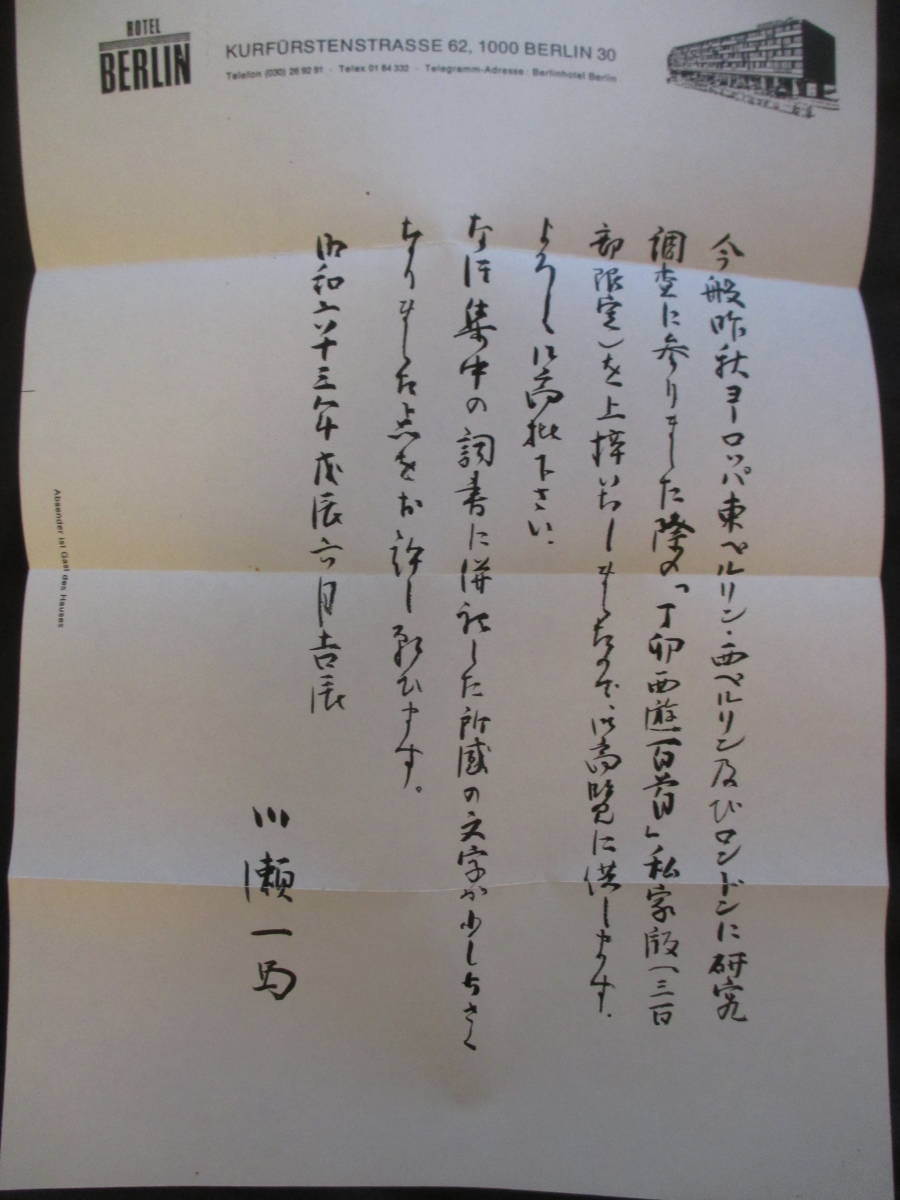 HOTEL
BERLIN
KURFÜRSTENSTRASSE 62, 1000 BERLIN 30
Telefon (030) 26 92 91 · Telex 01 84 332 · Telegramm-Adresse: Berlinhotel Berlin
今般昨秋ヨーロッパ東ベルリン・西ベルリン及びロンドンに研究
調査に参りました際の「丁卯西遊百首」私家版(三百
部限定)を上梓いたしましたので、御高覧に供します。
よろしく御高批下さい。
なほ集中の詞書に併記した所感の文字が少しちさく
なりました点をお許し願ひます。
昭和六十三年戊辰六月吉辰
川瀬一馬
Absender ist Gast des Hauses